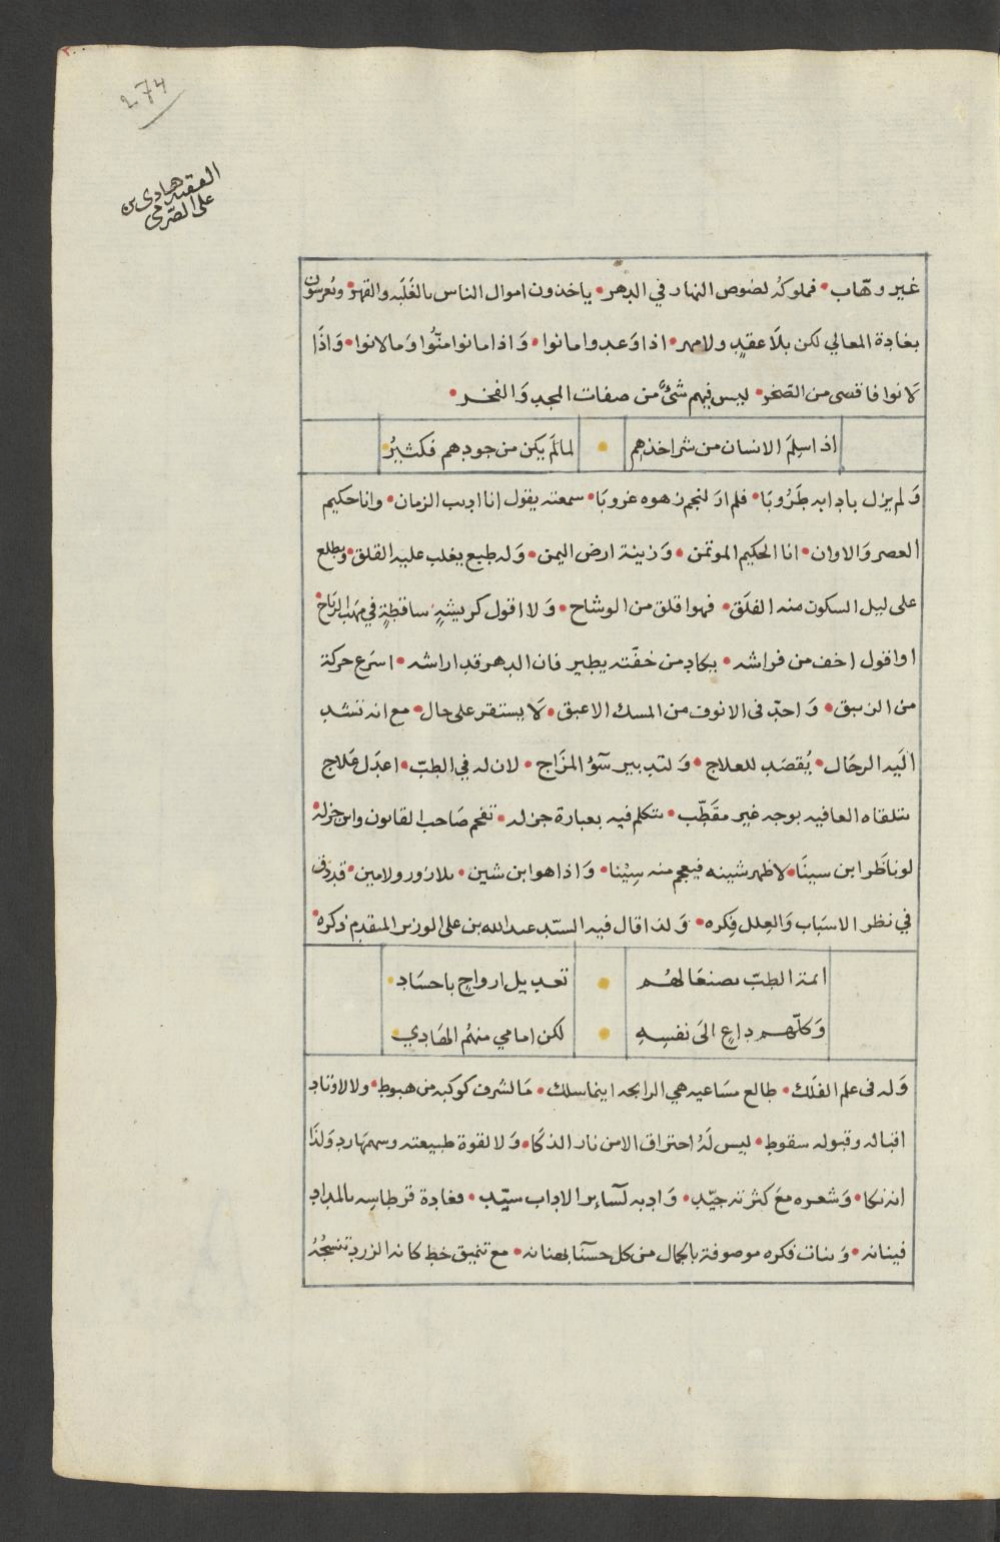 274
الفقيه هادى بن
على الصرمى
غير وهّاب • فملوكهُ لصُوص النهار في الدهر • ياخذون اموال الناس بالغَلَبه والقهر • ويُعرسون
بغادة المعالي لكن بلَا عقدٍ ولامهر • اذا وَعدوا مانوا • وَاذا مانوا منّوا وَمالانوا • وَاذَا
لَانوا فاقصى من الصّخر • ليس فيهم شئٌ من صفات المجد وَالفخر •
اذا سلِمَ الانسان من شر اخذهم • لما لَم يكن من جودهم فكثيرُ •
وَلم يزل بادابه طَرُوبَا • فلم ارَ لنجم زهوه غروبَا • سمعته يقول انا اديب الزمان • وانا حكيم
العصر وَالاوان • انا الحكيم الموتمن • وَزينة ارض اليمن • وَله طبع يغلب عليه القلق • ويطلع
على ليل السكون منه الفلَق • فهوا قلق من الوشاح • وَلا اقول كريشةٍ ساقطةٍ في مهب الرياح •
او اقول اخف من فراشه • يكاد من خفّته يطير فان الدهر قد اراشه • اسرَع حركة
من الزيبق • وَاحدّ فى الانوف من المسك الاعبق • لَا يستقر على حال • مع انه تشد
اليَه الرحَال • يُقصَد للعلاج • وَلتدبير سَوُ المزَاج • لان له في الطبّ • اعدَل علاج
يتلقاه العافيه بوجه غير مقَطّب • يتكلم فيه بعبارة جزله • تفحم صَاحب القانون وابن جزله •
لو ناظَر ابن سينَا • لاظهر شينه فيعجم منه سِيْنا • وَاذا هو ابن شين • بلا زور ولامين • قد دقّ
في نظر الاسبَاب وَالعِلل فِكره • وَلذا قال فيه السيّد عبدالله بن على الوزير المتقدم ذكره •
ايمة الطبّ بصنعَا لهُم • تعديل ارواحٍ باجسَاد •
وَكلّهم داعٍ الىَ نفسِهِ • لكن امامي منهُم الهَادِي •
وَله فى علم الفلَك • طالع مسَاعيه هي الرابحه اينما سلك • مَا لشرف كوكبه من هبوط • ولالاوتاد
اقباله وقبوله سقوط • ليس لَهُ احتراق الامن نار الذكَا • وَلا لقوة طبيعته وسمتهَا رد وَلذَا
انه تكا • وَشعره معَ كثرته جيّد • وَادبه لسَاير الاداب سيّد • فغادة قرطاسِه بالمداد
فينانه • وَبنات فكره موصوفة بالجمال من كل حسنآ بهنانه • مع تنميق خط كانه الزرد تنسجُهُ